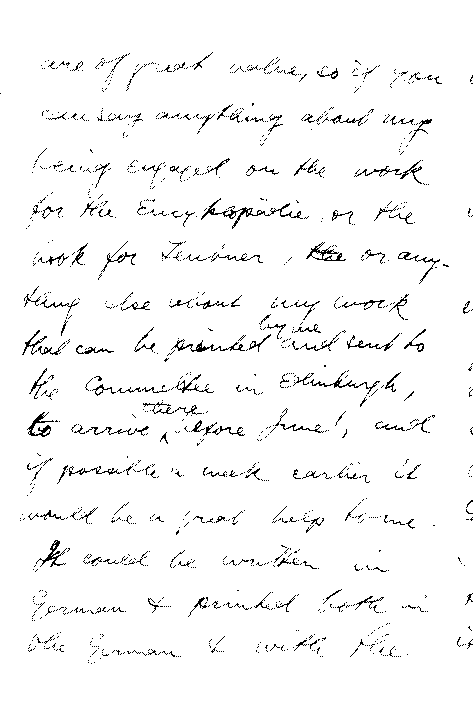 are of great value, so if you
can say anything about my
being engaged on the work
for the Encyklopädie or the
book for Teubner, the or any-
thing else about my work
that can be printed by me and sent to
the Committee in Edinburgh,
to arrive there before June 1, and
if possible a week earlier it
would be a great help to me.
It could be written in
German & printed both in
the German & with the